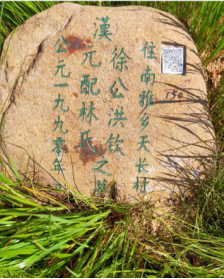 住南雅乡天长村
漢
徐公洪钦
元配林氏
之墓
公元一九九零年
150